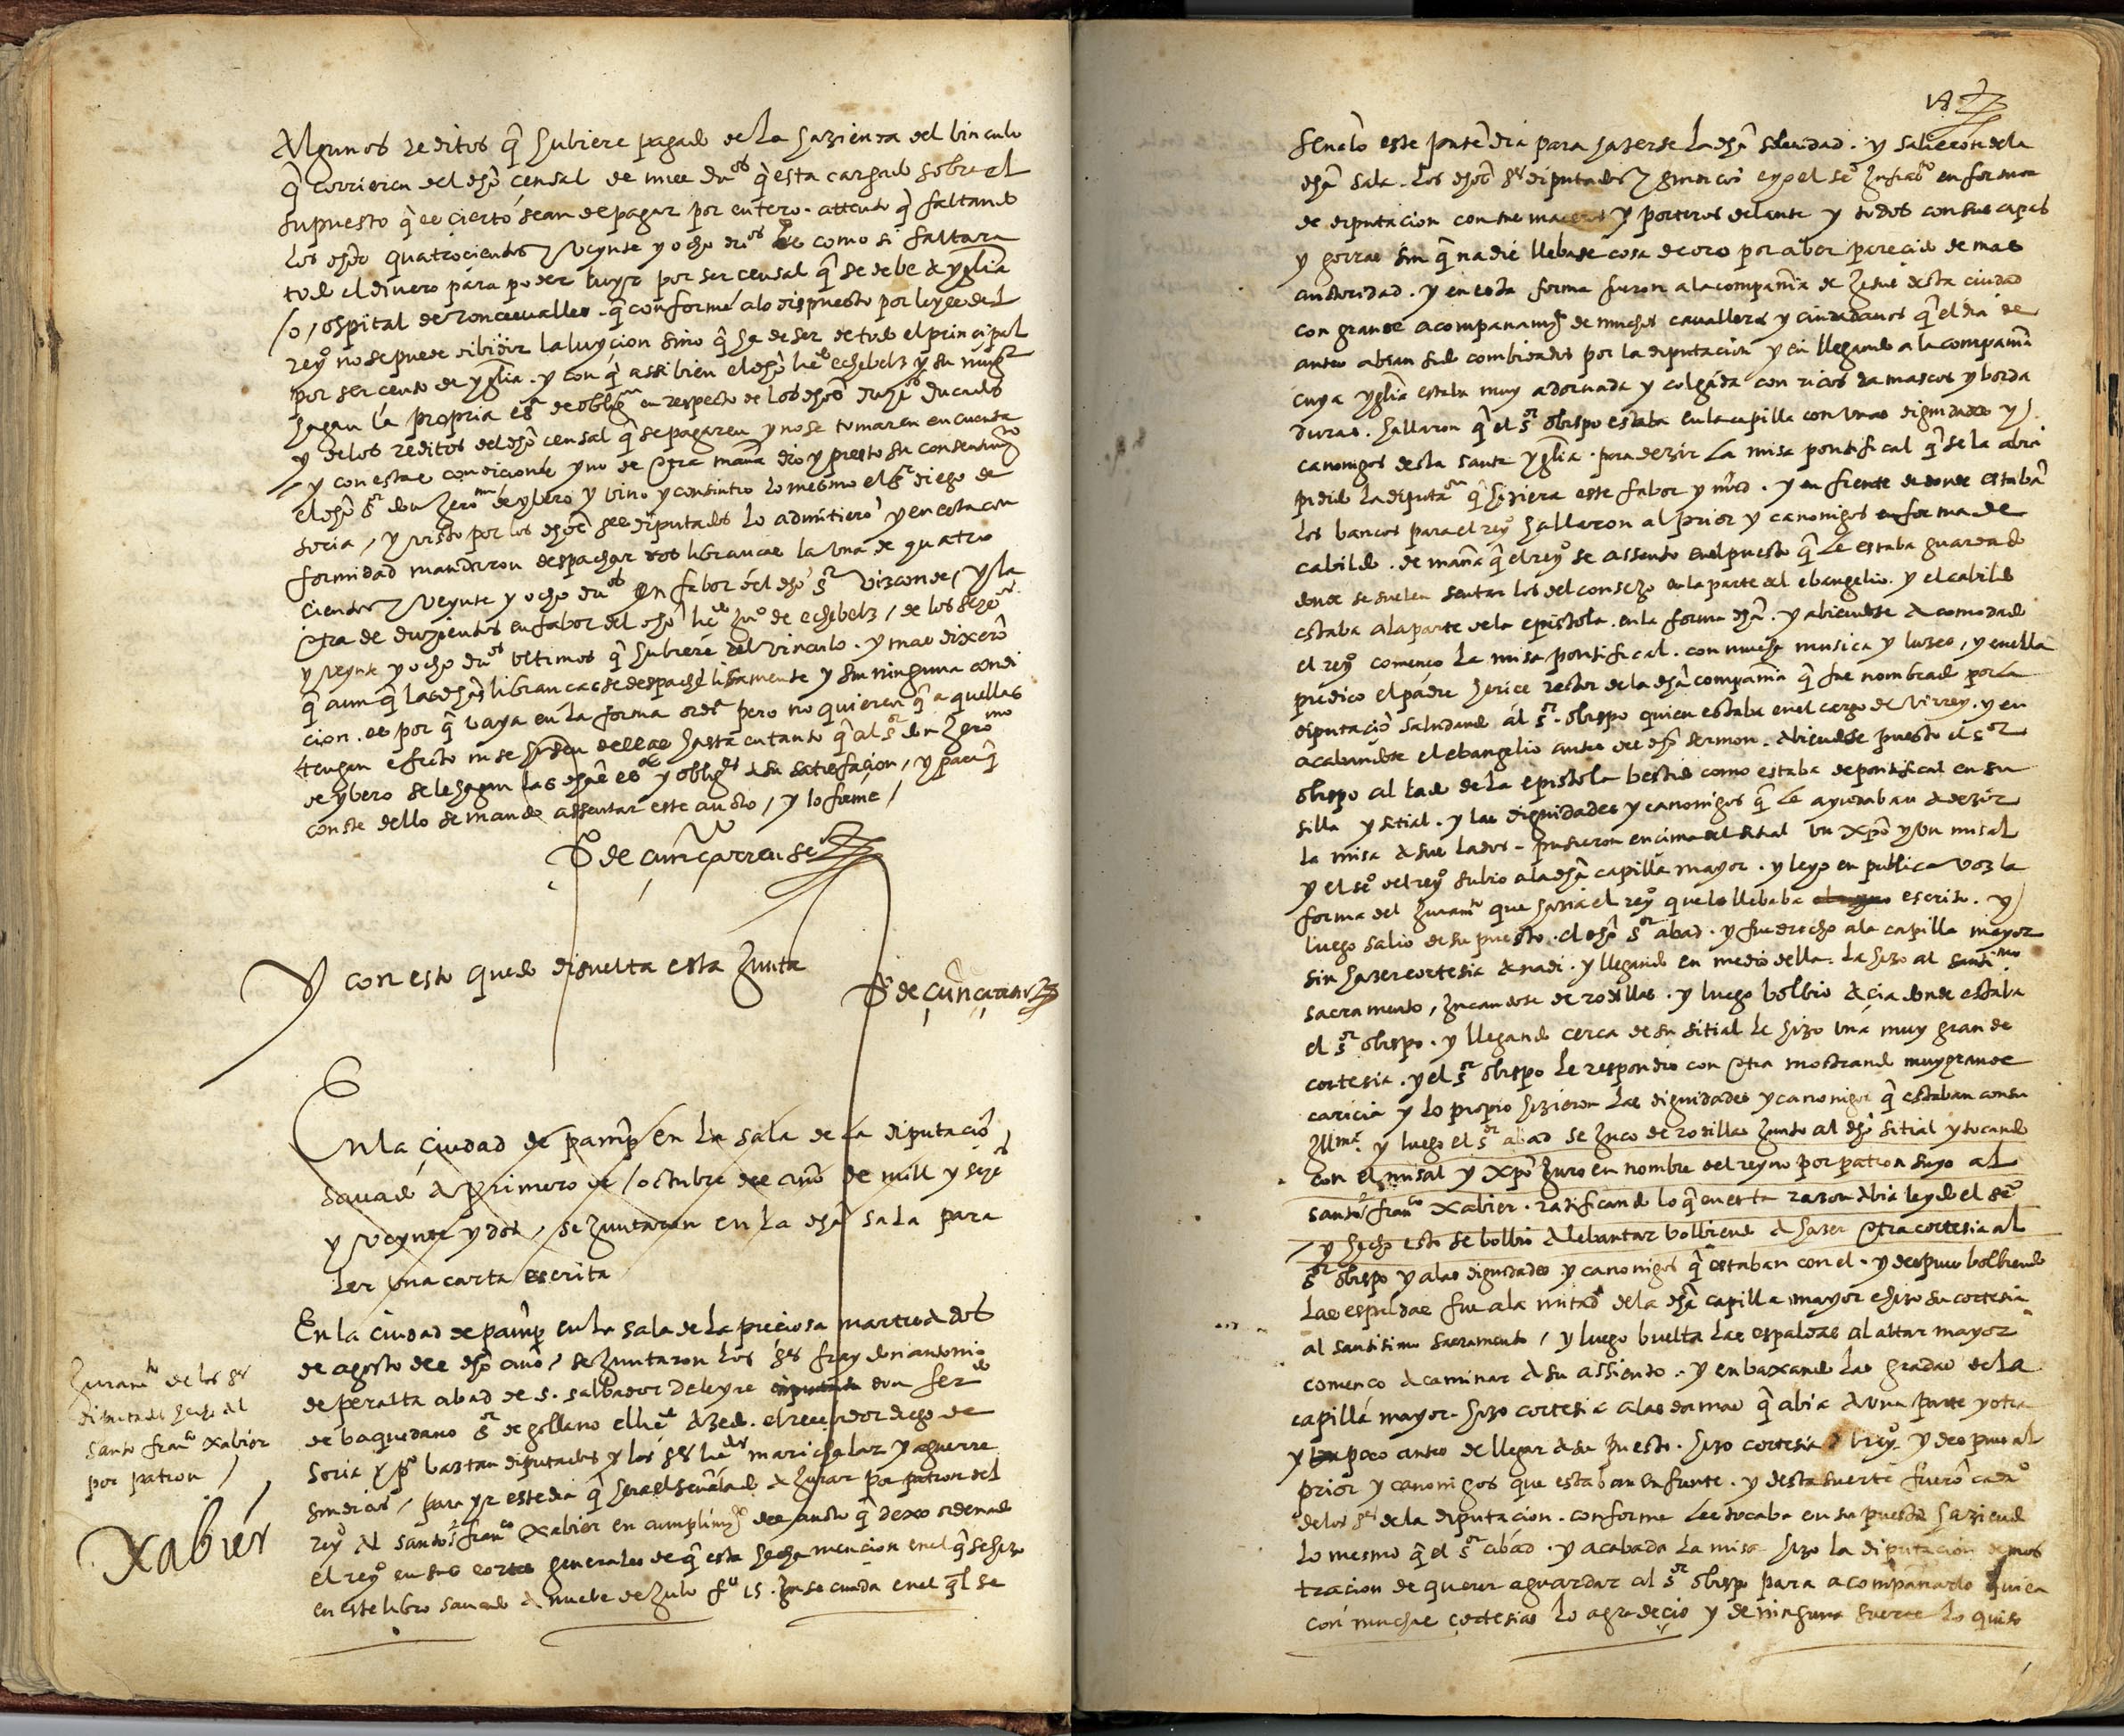 Algunos reditos q̂ hubiere pagado de la hazienda del binculo
q̂ corrieren del dhô censal de mil dụos q̂ esta cargado sobre el
supuesto q̂ es cierto sean de pagar por entero. attento q̂ faltando
los dhôs quatrocientos y veynte y ocho dụos es como si faltara
todo el dinero para poder luyr por ser censal q̂ se debe a yglîa
/o/ ospital de Roncesvalles. q̂ conforme a lo dispuesto por leyes del
reyo no se puede dibidir la luycion sino q̂ ha de ser de todo el principal
por ser censo de yglîa. y con q̂ assi bien el dhô licdo echebelz y su muger
hagan la propria esa de obligon en respecto de los dhôs duzos ducados
y de los reditos del dhô censal q̂ se pagaren y no se tomaren en cuenta
y con estas condiciones y no de otra manâ dio y presto su consentimto
el dhô sor don Zeronmo de ybero y vino y consintio lo mesmo el sr diego de
soria / y visto por los dhôs sres diputados lo admitierô y en esta con
formidad mandaron despachar dos librancas la una de quatro
cientos y veynte y ocho dụos en fabor del dho sor Vizconde / y la
otra de duzientos en fabor del dhô licdo Juo de echebelz / de los sezos
y veynte y ocho dụos ultimos q̂ hubiere del vinculo. y mas dixerô
q̂ aunq̂ las dhâs librancas se despachê lisamente y sin ninguna condi
cion. es por q̂ vaya en la forma orda pero no quieren q̂ aquellas
tengan efecto ni se husen dellas hasta en tanto q̂ al sor don Zeronmo
de ybero se le hagan las dhâs esas y obligs a su satisfacion / y para q̂
conste dello se mando assentar este aucto / y lo firme /
Po de çunçarren seo
Y con esto quedo disuelta esta Junta
Po de çunçarren
En la ciudad de pamp en la sala de la diputaciô
savado a primero de octubre del año de mill y sezos
y veynte y dos, se Juntaron en la dhâ sala para
ler una carta escrita
Juramto de los srs
diputados hecho al
santo franco xabier
por patron /
Xabier
En la ciudad de pamp en la sala de la preciosa martes a dos
de agosto del dhô anô, se Juntaron los srs fray don antonio
de peralta abad de s. salbador de leyre don ferdo
de baquedano sor de gollano el licdo azedo. el recevidor diego de
soria y po baztan diputados y los srs licdos marichalar y aguerre
sindicos, para yr este dia q̂ hera el señalado a Jurar por patron del
reyo al santo franco Xabier en cumplimto del aucto q̂ dexo ordenado
el reyo en sus cortes generales de q̂ esta hecha mencion en el q̂ se hizo
en este libro savado a nuebe de Julio fo 15. en el ql se
señalo este pntê dia para hazerse la dhâ solenidad. y salieron de la
dhâ sala. los dhôs srs diputados y sindicos e yo el seo infraô en forma
de diputacion con sus maceros y porteros delante y todos con sus capas
y gorras sin q̂ nadie llebase cosa de oro por aber parecido de mas
autoridad. y en esta forma fueron a la companîa de Jesus desta ciudad
con grande acompanamto de muchos cavalleros y ciudadanos q̂ el dia de
antes abian sido combidados por la diputacion y en llegando a la companîa
cuya yglîa estaba muy adornada y colgada con ricos damascos y borda
duras. hallaron q̂ el sor obispo estaba en la capilla con unas dignidades y
canonigos desta santa yglîa. para dezir la misa pontifical q̂ se la abia
pidido la diputaon q̂ hiziera este fabor y mrd. y en frente de donde estabâ
los bancos para el reyo hallaron al prior y canonigos en forma de
cabildo. de manâ q̂ el reyo se assento en el puesto q̂ le estaba guardado
donde se suelen sentar los del consejo en la parte del ebangelio. y el cabildo
estaba a la parte de la epistola. en la forma dhâ. y abiendose acomodado
el reyo comenco la misa pontifical. con mucha musica y luzes, y en ella
predico el padre Jerice rector de la dhâ compania q̂ fue nombrado por la
diputaciô saludando al sor obispo quien estaba en el cargo de Virrey. y en
acabandose el ebangelio antes del dhô sermon. abiendose puesto el sor
obispo al lado de la epistola bestido como estaba de pontifical en su
silla y sitial. y las dignidades y canonigos q̂ le ayudaban a dezir
la misa a sus lados. pusieron encima del sitial un Xpô y un misal
y el seo del reyo subio a la dhâ capilla mayor. y leyo en publica voz la
forma del Juramto que hazia el reyo que lo llebaba escrito. y
luego salio de su puesto. el dhô sor abad. y fue drecho a la capilla mayor
sin hazer cortesia a nadi. y llegando en medio della. la hizo al santimo
sacramento, hincandose de rodillas. y luego bolbio acia donde estaba
el sor obispo. y llegando cerca de su sitial le hizo una muy grande
cortesia. y el sor obispo le respondio con otra mostrando muy grande
caricia y lo propio hizieron las dignidades y canonigos q̂ estaban con su
Illma. y luego el sor abad se hinco de rodillas Junto al dhô sitial y tocando
con el misal y Xpô Juro en nombre del reyno por patron suyo al
santo franco Xabier. ratificando lo q̂ en esta razon abia leydo el seo
/ y hecho esto se bolbio a lebantar bolbiendo a hazer otra cortesia al
sor obispo y a las dignidades y canonigos q̂ estaban con el. y despues bolbiendo
las espaldas fue a la mitad de la dhâ capilla mayor e hizo su cortesia
al santisimo sacramento, y luego buelta las espaldas al altar mayor
comenco a caminar a su assiento. y en baxando las gradas de la
capilla mayor. hizo cortesia a las damas q̂ abia a una parte y otra
y poco antes de llegar a su puesto. hizo cortesia al reyo. y despues al
prior y canonigos que estaban en frente. y desta suerte fuerô cada uo
de los srs de la diputacion. conforme les tocaba en su puesto haziendo
lo mesmo q̂ el sor abad. y acabada la misa hizo la diputacion demos
tracion de querer aguardar al sor obispo para acompañarlo quien
con muchas cortesias lo agradecio y de ninguna suerte lo quiso